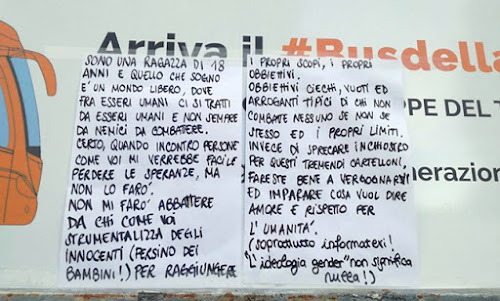 Arriva il #Busdella
SONO UNA RAGAZZA DI 18
ANNI E QUELLO CHE SOGNO
E' UN MONDO LIBERO, DOVE
FRA ESSERI UMANI CI SI TRATTI
DA ESSERI UMANI E NON SEMPRE
DA NEMICI DA COMBATTERE.
CERTO, QUANDO INCONTRO PERSONE
COME VOI MI VERREBBE FACILE
PERDERE LE SPERANZE, MA
NON LO FARO'.
NON MI FARO' ABBATTERE
DA CHI COME VOI
STRUMENTALIZZA DEGLI
INNOCENTI (PERSINO DEI
BAMBINI!) PER RAGGIUNGERE
I PROPRI SCOPI, I PROPRI
OBBIETTIVI.
OBBIETTIVI CIECHI, VUOTI ED
ARROGANTI TIPICI DI CHI NON
COMBATE NESSUNO SE NON SE
STESSO ED I PROPRI LIMITI.
INVECE DI SPRECARE INCHIOSTRO
PER QUESTI TREMENDI CARTELLONI,
FARESTE BENE A VERGOGNARVI
ED IMPARARE COSA VUOL DIRE
AMORE E RISPETTO PER
L'UMANITA'.
(soprattutto informatevi!
"L'ideologia gender" non significa
nulla!)
PPE DEL T
nerazion